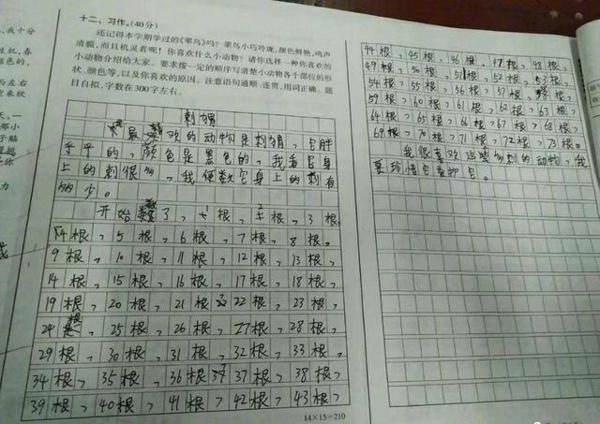 十二、习作。(40分)
还记得本学期学过的《翠鸟》吗?翠鸟小巧玲珑,颜色鲜艳,鸣声
清脆,而且机灵着呢!你喜欢什么小动物?请你选择一种你喜欢的
小动物介绍给大家。要求按一定的顺序写清楚小动物各个部位的形
状、颜色等,以及你喜欢的原因。注意语句通顺、连贯,用词正确。题
目自拟,字数在300字左右。
刺猬
我最喜欢的动物是刺猬,它胖
乎乎的,颜色是黑色的,我看它身
上的刺很多,我便数它身上的刺有
多少。
开始数了,1根,2根,3根,
4根,5根,6根,7根,8根,
9根,10根,11根,12根,13根,
14根,15根,16根,17根,18根,
19根,20根,21根,22根,23根,
24根,25根,26根,27根,28根,
29根,30根,31根,32根,33根,
34根,35根,36根,37根,38根,
39根,40根,41根,42根,43根,
14×15=210
44根,45根,46根,47根,48根,
49根,50根,51根,52根,53根,
54根,55根,56根,57根,58根,
59根,60根,61根,62根,63根,
64根,65根,66根,67根,68根,
69根,70根,71根,72根,73根。
我很喜欢这些多刺的动物,我